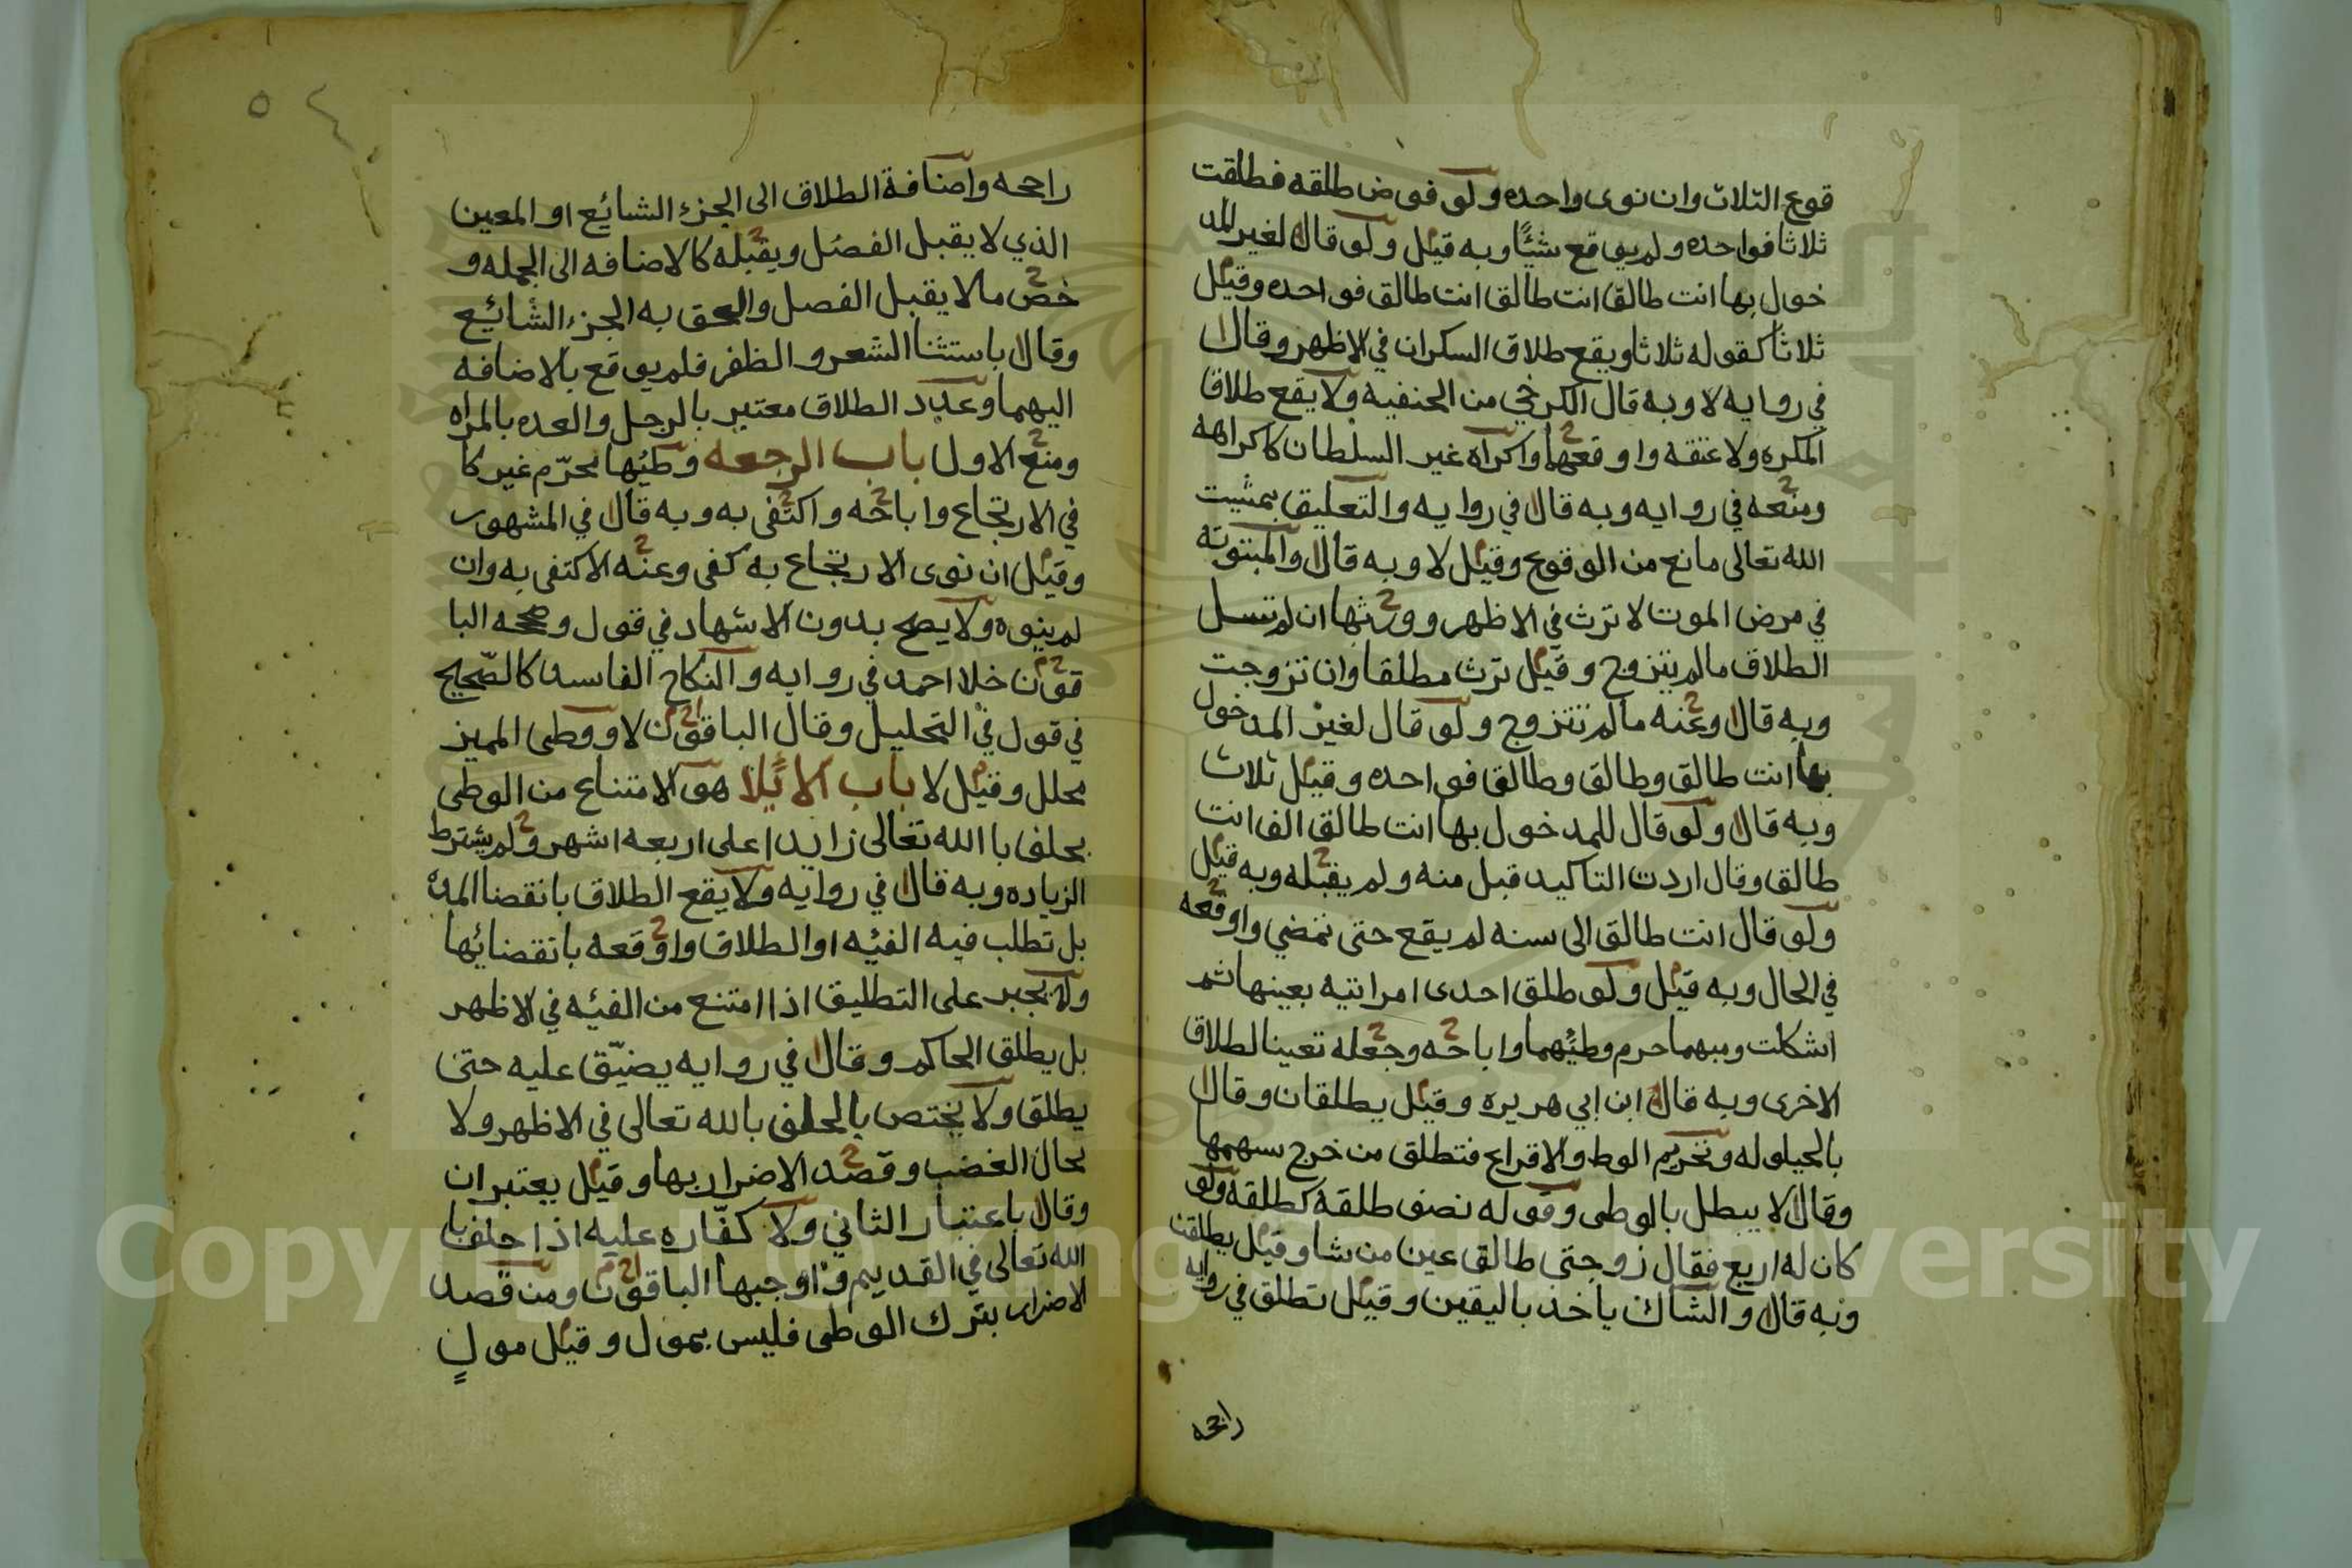 قوع الثلاث وان نوى واحده ولو فوض طلقه فطلقت
ثلاثا فواحده ولم يوقع شيًا وبه قيل ولو قال لغير المد
خول بها انت طالق انت طالق انت طالق فواحده وقيل
ثلاثا كقوله ثلاثا ويقع طلاق السكران في الاظهر وقال
في روايه لا وبه قال الكرخي من الحنفيه ولا يقع طلاق
المكره ولا عتقه واوقعها واكراه غير السلطان كاكراهه
ومنعه في روايه وبه قال في روايه والتعليق بمشيت
الله تعالى مانع من الوقوع وقيل لا وبه قال والمبتوته
في مرض الموت لا ترث في الاظهر وورثها ان لم تسل
الطلاق مالم يتزوج وقيل ترث مطلقا وان تزوجت
وبه قال وعنه مالم تتزوج ولو قال لغير المدخول
بها انت طالق وطالق وطالق فواحده وقيل ثلاث
وبه قال ولو قال للمدخول بها انت طالق الف انت
طالق وقال اردت التاكيد قبل منه ولم يقبله وبه قيل
ولو قال انت طالق الى سنه لم يقع حتى تمضي واوقعه
في الحال وبه قيل ولو طلق احدى امراتيه بعينها ثم
اشكلت ومبهما حرم وطئهما واباحه وجعله تعينا لطلاق
الاخرى وبه قال ابن ابي هريره وقيل يطلقان وقال
بالحيلوله وتحريم الوط والاقراع فتطلق من خرج سهمها
وقال لا يبطل بالوطى وقوله نصف طلقة كطلقه ولو
كان له اربع فقال زوجتى طالق عين من شا وقيل يطلقن
وبه قال والشاك ياخذ باليقين وقيل تطلق في روايه
راجحه
٥٤
راجحه واضافة الطلاق الى الجزء الشائع او المعين
الذي لا يقبل الفصل ويقبله كالاضافه الى الجمله و
خص مالا يقبل الفصل والحق به الجزء الشائع
وقال باستثنا الشعر والظفر فلم يوقع بالاضافه
اليهما وعدد الطلاق معتبر بالرجل والعده بالمراه
ومنع الاول باب الرجعه وطئها محرّم غير كا
في الارتجاع واباحه واكتفى به وبه قال في المشهور
وقيل ان نوى الارتجاع به كفى وعنه الاكتفى به وان
لم ينوه ولا يصح بدون الاشهاد في قول وصححه البا
قون خلا احمد في روايه والنكاح الفاسد كالصّحيح
في قول في التحليل وقال الباقون لا ووطى المميز
محلل وقيل لا باب الائلا هو الامتناع من الوطى
بحلف باالله تعالى زايدا على اربعه اشهر ولم يشترط
الزياده وبه قال في روايه ولا يقع الطلاق بانقضا المدة
بل تطلب فيه الفيئه او الطلاق واوقعه بانقضائها
ولا يجبر على التطليق اذا امتنع من الفيئه في الاظهر
بل يطلق الحاكم وقال في روايه يضيّق عليه حتى
يطلق ولا يختص بالحلف بالله تعالى في الاظهر ولا
بحال الغضب وقصد الاضرار بها وقيل يعتبران
وقال باعتبار الثاني ولا كفّاره عليه اذا حلف با
الله تعالى في القديم واوجبها الباقون ومن قصد
الاضرار بترك الوطى فليس بمول وقيل مولٍ